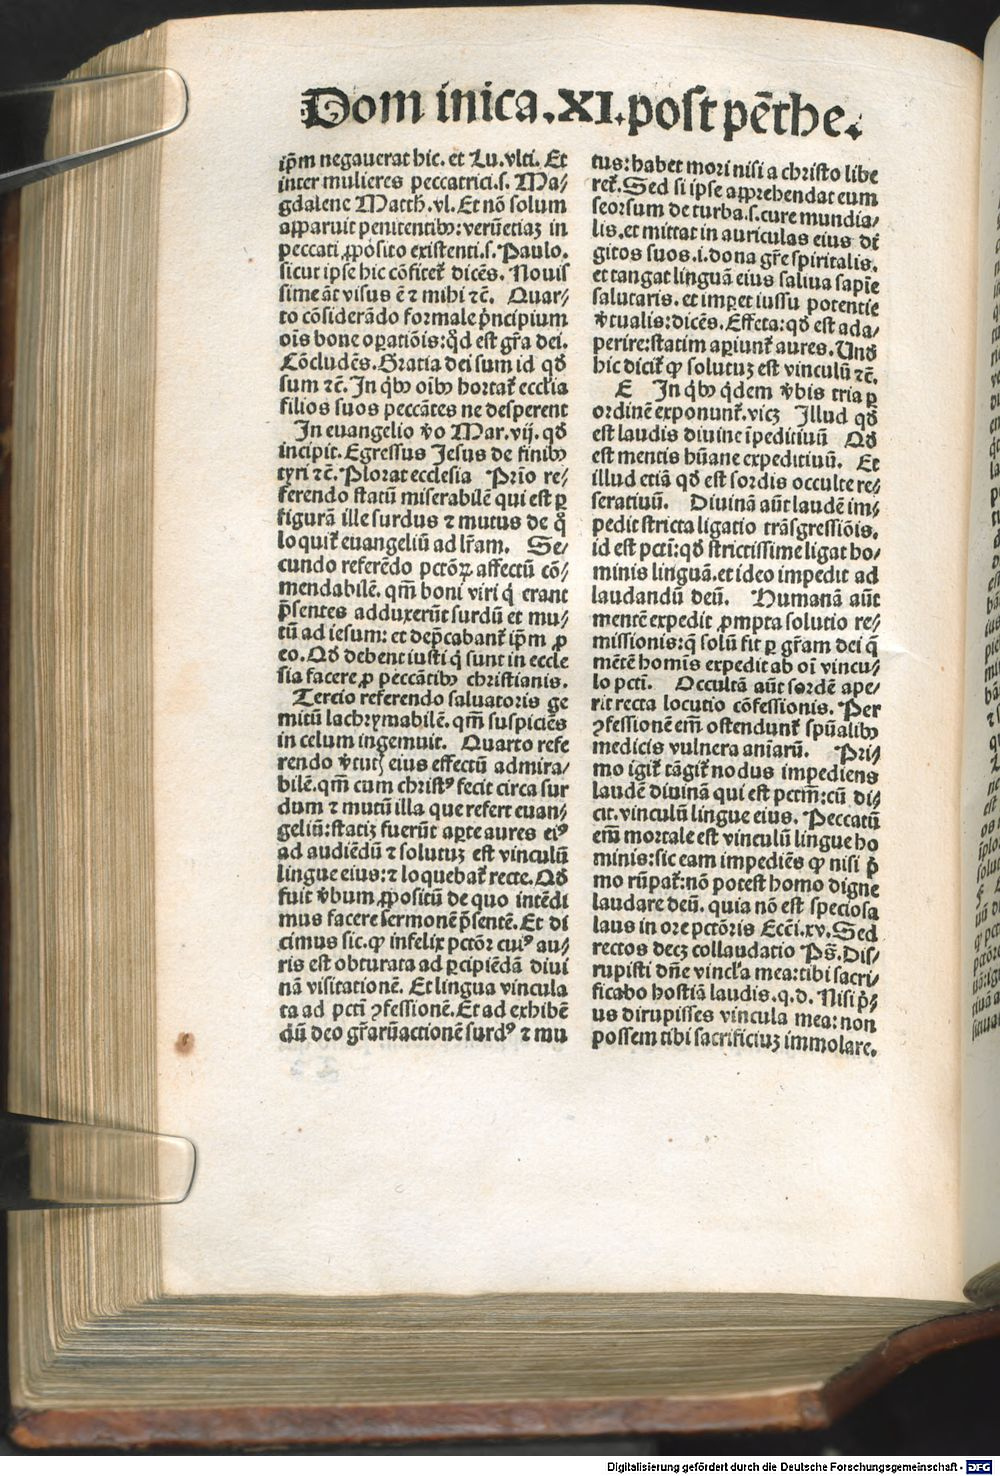 Dom inica.XI.post pēthe.
ip̄m negauerat hic. et Lu.vlti. Et
inter mulieres peccatrici.s. Ma⸗
gdalene Matth.vl. Et nō solum
apparuit penitentibꝰ: verūetiaꝫ in
peccati ꝓposito existenti.s. Paulo.
sicut ipse hic cōfitet᷑ dicēs. Nouis
sime āt visus ē ⁊ mihi ⁊c. Quar⸗
to cōsiderādo formale pͥncipium
oīs bone oꝑatiōis: qͦd est gr̄a dei.
Cōcludēs. Gratia dei sum id qđ
sum ⁊c. In qͥbꝰ oībꝰ hortat᷑ ecclia
filios suos peccātes ne desperent
In euangelio v̄o Mar.vij. qđ
incipit. Egressus Jesus de finibꝰ
tyri ⁊c. Plorat ecclesia Prīo re⸗
ferendo statū miserabilē qui est ꝑ
figurā ille surdus ⁊ mutus de qͦ
loquit᷑ euangeliū ad lr̄am. Se⸗
cundo referēdo pctōꝝ affectū cō⸗
mendabilē. qm̄ boni viri qͥ erant
p̄sentes adduxerūt surdū et mu⸗
tū ad iesum: et dep̄cabant᷑ ip̄m ꝓ
eo. Qđ debent iusti qͥ sunt in eccle
sia facere ꝓ peccātibꝰ christianis.
Tercio referendo saluatoris ge
mitū lachrymabilē. qm̄ suspiciēs
in celum ingemuit. Quarto refe
rendo v̄tutꝭ eius effectū admira⸗
bilē. qm̄ cum christꝰ fecit circa sur
dum ⁊ mutū illa que refert euan⸗
geliū: statiꝫ fuerūt aꝑte aures eiꝰ
ad audiēdū ⁊ solutuꝫ est vinculū
lingue eius: ⁊ loquebat᷑ recte. Qđ
fuit v̄bum ꝓpositū de quo intēdi
mus facere sermonē p̄sentē. Et di
cimus sic. ꝙ infelix pctōr cuiꝰ au⸗
ris est obturata ad ꝑcipiēdā diui
nā visitationē. Et lingua vincula
ta ad pcti ꝯfessionē. Et ad exhibē
dū deo gr̄aꝝ actionē surdꝰ ⁊ mu
tus: habet mori nisi a christo libe
ret᷑. Sed si ipse apprehendat eum
seorsum de turba.s. cure mundia⸗
lis. et mittat in auriculas eius di
gitos suos .i. dona gr̄e spiritalis.
et tangat linguā eius saliua sapīe
salutaris. et imꝑet iussu potentie
v̄tualis: dicēs. Effeta: qđ est ada⸗
perire: statim aꝑiunt᷑ aures. Unđ
hic dicit᷑ ꝙ solutuꝫ est vinculū ⁊c.
E In qͥbꝰ qͥdem v̄bis tria ꝑ
ordinē exponunt᷑. vicꝫ Illud qđ
est laudis diuine īpeditiuū Qđ
est mentis hūane expeditiuū. Et
illud etiā qđ est sordis occulte re⸗
seratiuū. Diuinā aūt laudē im⸗
pedit stricta ligatio trāsgressiōis.
id est pcti: qđ strictissime ligat ho⸗
minis linguā. et ideo impedit ad
laudandū deū. Humanā aūt
mentē expedit ꝓmpta solutio re⸗
missionis: q̄ solū fit ꝑ gr̄am dei q̄
mētē homīs expedit ab oī vincu⸗
lo pcti. Occultā aūt sordē ape⸗
rit recta locutio cōfessionis. Per
ꝯfessionē em̄ ostendunt᷑ sp̄ualibꝰ
medicis vulnera anīarū. Pri⸗
mo igit᷑ tāgit᷑ nodus impediens
laudē diuinā qui est pctm̄: cū di⸗
cit. vinculū lingue eius. Peccatū
em̄ mortale est vinculū lingue ho
minis: sic eam impediēs ꝙ nisi pͥ
mo rūpat᷑: nō potest homo digne
laudare deū. quia nō est speciosa
laus in ore pctōris Ecci.xv. Sed
rectos decꝫ collaudatio Ps̄. Dis⸗
rupisti dn̄e vincl̄a mea: tibi sacri⸗
ficabo hostiā laudis. q.d. Nisi pͥ⸗
us dirupisses vincula mea: non
possem tibi sacrificiuꝫ immolare.
Digitalisierung gefördert durch die Deutsche Forschungsgemeinschaft - DFG